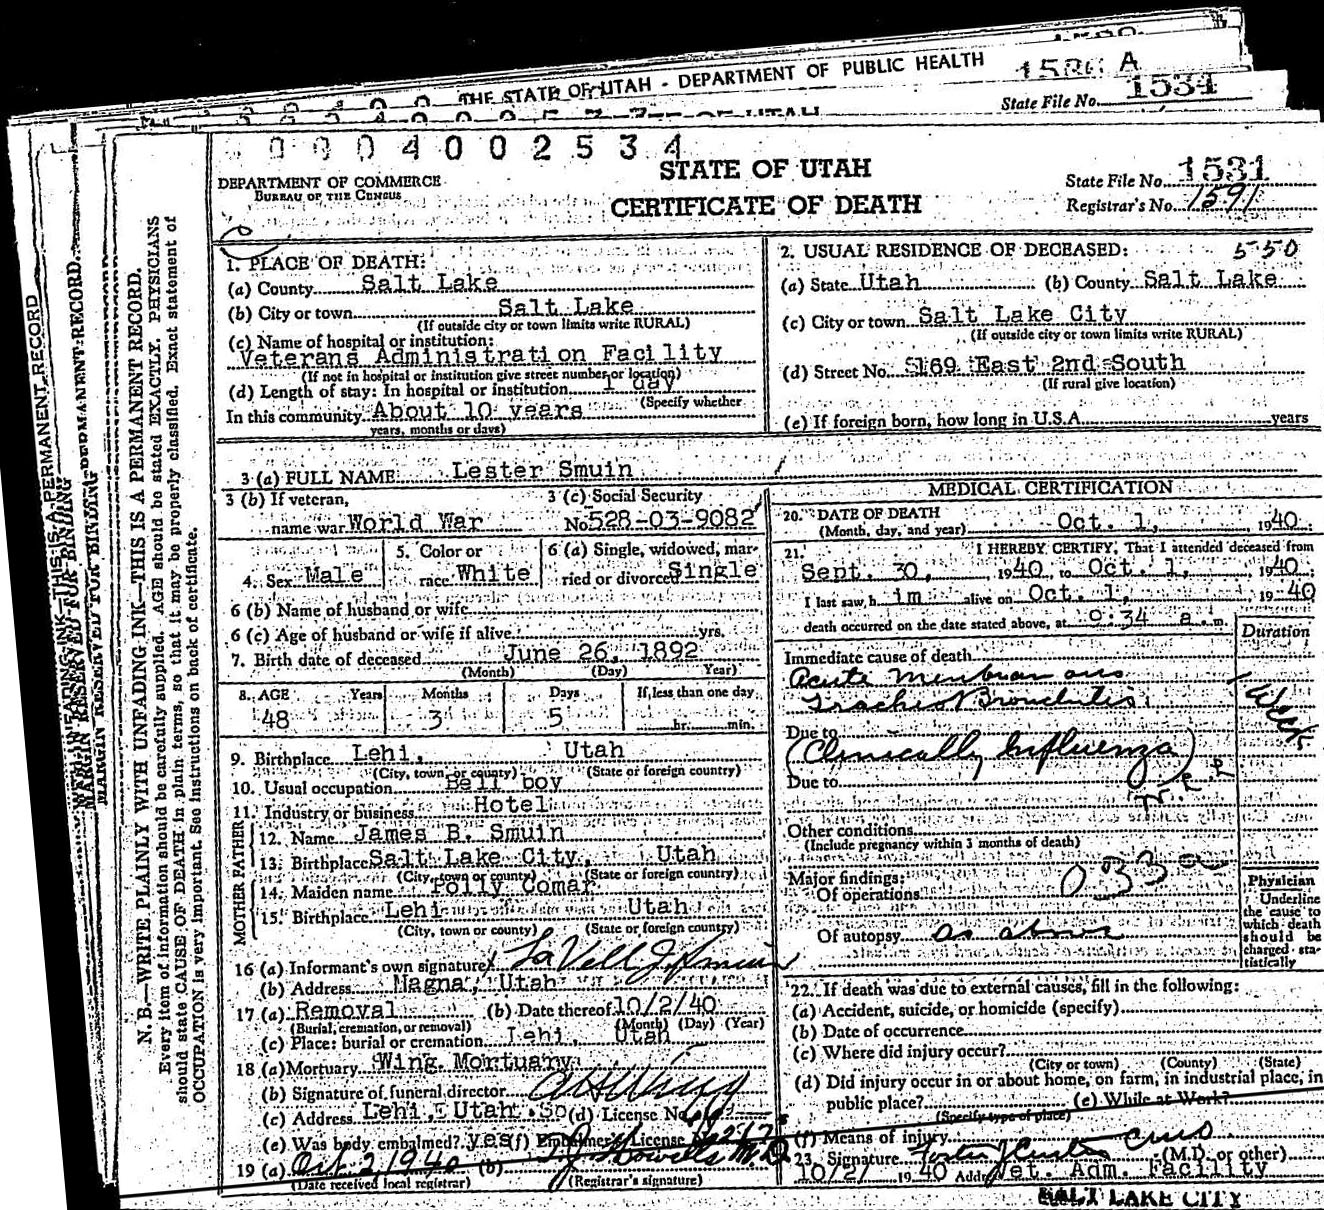 THE STATE OF UTAH - DEPARTMENT OF PUBLIC HEALTH
1536 A
State File No. 1534
0 0 0 4 0 0 2 5 3 4
STATE OF UTAH
CERTIFICATE OF DEATH
DEPARTMENT OF COMMERCE
BUREAU OF THE CENSUS
State File No. 1531
Registrar's No. 1591
1. PLACE OF DEATH:
(a) County Salt Lake
(b) City or town Salt Lake
(If outside city or town limits write RURAL)
(c) Name of hospital or institution:
Veterans Administration Facility
(If not in hospital or institution give street number or location)
(d) Length of stay: In hospital or institution 1 day
(Specify whether
In this community About 10 years
years, months or days)
2. USUAL RESIDENCE OF DECEASED: 550
(a) State Utah (b) County Salt Lake
(c) City or town Salt Lake City
(If outside city or town limits write RURAL)
(d) Street No. 5169 East 2nd South
(If rural give location)
(e) If foreign born, how long in U.S.A. years
3 (a) FULL NAME Lester Smuin
3 (b) If veteran,
name war World War
3 (c) Social Security
No. 528-03-9082
4. Sex Male
5. Color or
race White
6 (a) Single, widowed, mar-
ried or divorced Single
6 (b) Name of husband or wife
6 (c) Age of husband or wife if alive yrs.
7. Birth date of deceased June 26, 1892
(Month) (Day) Year)
8. AGE Years Months Days If less than one day
48 3 5 hr. min.
9. Birthplace Lehi, Utah
(City, town, or county) (State or foreign country)
10. Usual occupation Bell boy
11. Industry or business Hotel
FATHER
12. Name James B. Smuin
13. Birthplace Salt Lake City, Utah
(City, town or county) (State or foreign country)
MOTHER
14. Maiden name Polly Comar
15. Birthplace Lehi Utah
(City, town or county) (State or foreign country)
16 (a) Informant's own signature LaVell J. Smuin
(b) Address Magna, Utah
17 (a) Removal (b) Date thereof 10/2/40
(Burial, cremation, or removal) (Month) (Day) (Year)
(c) Place: burial or cremation Lehi, Utah
18 (a) Mortuary Wing Mortuary
(b) Signature of funeral director
(c) Address Lehi, Utah (d) License No.
(e) Was body embalmed? yes (f) Embalmer's License
19 (a) Oct 2 1940 (b)
(Date received local registrar) (Registrar's signature)
MEDICAL CERTIFICATION
20. DATE OF DEATH
(Month, day, and year) Oct. 1, 1940
21. I HEREBY CERTIFY, That I attended deceased from
Sept. 30, 1940, to Oct. 1, 1940
I last saw him alive on Oct. 1, 1940
death occurred on the date stated above, at 9:34 a.m.
Duration
Immediate cause of death
Acute membranous
Tracheo Bronchitis 1 Week
Due to
(Clinically Influenza)
Due to
Other conditions
(Include pregnancy within 3 months of death)
Major findings:
Of operations
033a
Of autopsy as above
Physician
Underline
the cause to
which death
should be
charged sta-
tistically
22. If death was due to external causes, fill in the following:
(a) Accident, suicide, or homicide (specify)
(b) Date of occurrence
(c) Where did injury occur?
(City or town) (County) (State)
(d) Did injury occur in or about home, on farm, in industrial place, in
public place? (e) While at Work?
(Specify type of place)
(f) Means of injury
23. Signature (M.D. or other)
10/2/ 1940 Address Vet. Adm. Facility
SALT LAKE CITY
N. B.—WRITE PLAINLY WITH UNFADING INK—THIS IS A PERMANENT RECORD.
Every item of information should be carefully supplied. AGE should be stated EXACTLY. PHYSICIANS
should state CAUSE OF DEATH in plain terms, so that it may be properly classified. Exact statement of
OCCUPATION is very important. See instructions on back of certificate.
MARGIN RESERVED FOR BINDING